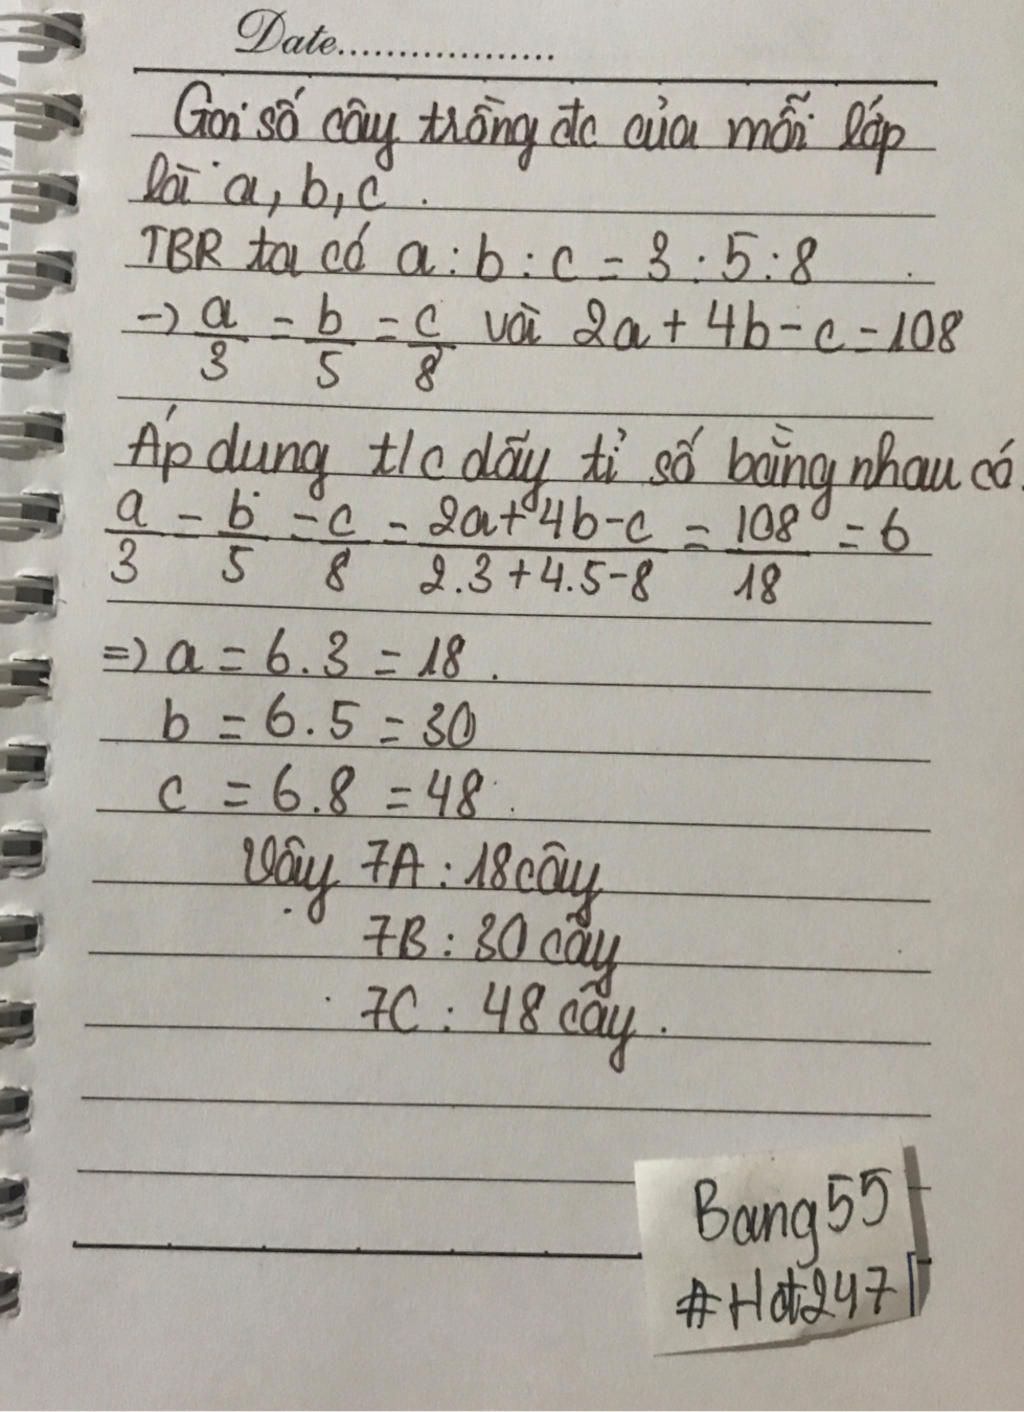 Date..................
Gọi số cây trồng đc của mỗi lớp
là a, b, c.
TBR ta có a : b : c = 3 : 5 : 8
→ a/3 = b/5 = c/8 và 2a + 4b - c = 108
Áp dụng t/c dãy tỉ số bằng nhau có.
a/3 = b/5 = c/8 = 2a + 4b - c/2.3 + 4.5 - 8 = 108/18 = 6
=> a = 6.3 = 18.
b = 6.5 = 30
c = 6.8 = 48.
Vậy 7A : 18 cây
7B : 30 cây
7C : 48 cây.
Bang55
#Hot247